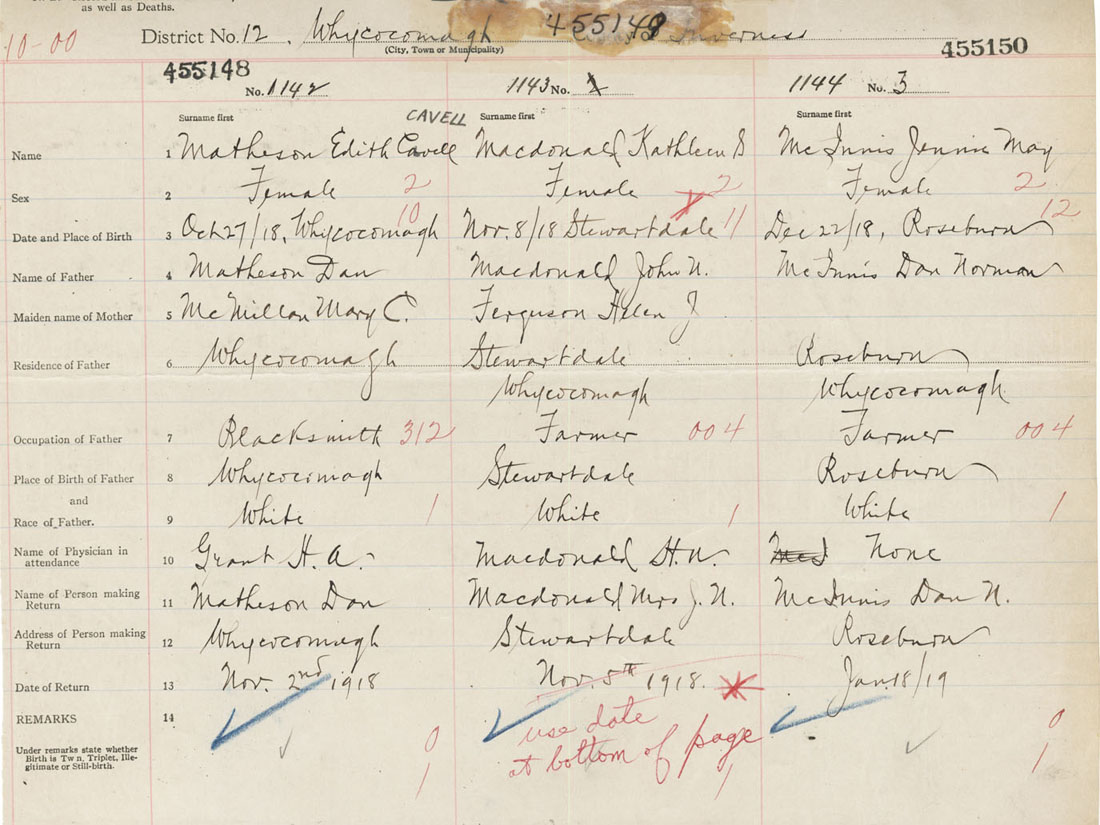 as well as Deaths.
10-00 District No. 12, Whycocomagh 455149 Inverness 455150
(City, Town or Municipality)
455148
No. 1142 1143 No. 2 1144 No. 3
CAVELL
Surname first Surname first Surname first
Name 1 Matheson Edith Cavell Macdonald Kathleen B McInnis Jennie May
Sex 2 Female 2 Female 2 Female 2
Date and Place of Birth 3 Oct 27/18, Whycocomagh 10 Nov. 8/18 Stewartdale 11 Dec 22/18, Roseburn 12
Name of Father 4 Matheson Dan Macdonald John N. McInnis Dan Norman
Maiden name of Mother 5 McMillan Mary C. Ferguson Helen J
Residence of Father 6 Whycocomagh Stewartdale Roseburn
Whycocomagh Whycocomagh
Occupation of Father 7 Blacksmith 312 Farmer 004 Farmer 004
Place of Birth of Father 8 Whycocomagh Stewartdale Roseburn
and
Race of Father. 9 White 1 White 1 White 1
Name of Physician in attendance 10 Grant H. A. Macdonald H. N. None
Name of Person making Return 11 Matheson Dan Macdonald Mrs J. N. McInnis Dan N.
Address of Person making Return 12 Whycocomagh Stewartdale Roseburn
Date of Return 13 Nov. 2nd 1918 Nov. 8th 1918. Jan. 18/19
REMARKS 14
use date
at bottom of page
Under remarks state whether
Birth is Twin, Triplet, Ille-
gitimate or Still-birth.
0 0
1 1 1